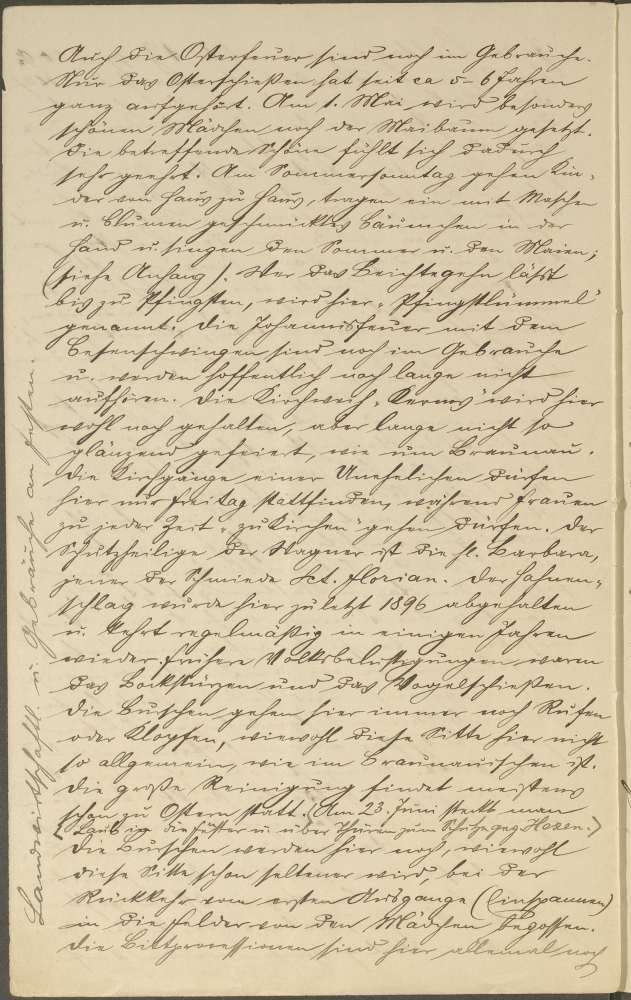 Auch die Osterfeuer sind noch im Gebrauche.
Nur das Osterschießen hat seit ca 5-6 Jahren
ganz aufgehört. Am 1. Mai wird besonders
schönen Mädchen noch der Maibaum gesetzt.
Die betreffende Schöne fühlt sich dadurch
sehr geehrt. Am Sommersonntag gehen Kin-
der von Haus zu Haus, tragen ein mit Maschen
u. Blumen geschmücktes Bäumchen in der
Hand u. singen den Sommer u. den Maien;
(siehe Anhang). Wer das Beichtegehn läßt
bis zu Pfingsten, wird hier „Pfingstlümmel"
genannt. Die Johannisfeuer mit dem
Besenschwingen sind noch im Gebrauche
u. werden hoffentlich noch lange nicht
aufhören. Die Kirchweih „Kermes" wird hier
wohl noch gehalten, aber lange nicht so
glänzend gefeiert, wie um Braunau.
Die Kirchgänge einer Unehelichen dürfen
hier nur Freitag stattfinden, während Frauen
zu jeder Zeit „zu Kirchen" gehen dürfen. Der
Schutzheilige der Wagner ist die hl. Barbara,
jener der Schmiede Sct. Florian. Der Hahnen-
schlag wurde hier zuletzt 1896 abgehalten
u. kehrt regelmäßig in einigen Jahren
wieder. Frühere Volksbelustigungen waren
das Bockstürzen und das Vogelschießen.
Die Burschen gehen hier immer noch Rufen
oder Klopfen, wiewohl diese Sitte hier nicht
so allgemein, wie im Braunauischen ist.
Die große Reinigung findet meistens
schon zu Ostern statt. (Am 23. Juni steckt man
Laub in die Fenster u. über Thüren zum Schutze geg. Hexen.)
Die Burschen werden hier noch, wiewohl
diese Sitte schon seltener wird, bei der
Rückkehr vom ersten Ausgange (Einspannen)
in die Felder von den Mädchen begossen.
Die Bittprocessionen sind hier allemal noch
Landwirtschaftl. u. Gebräuche an Festen.